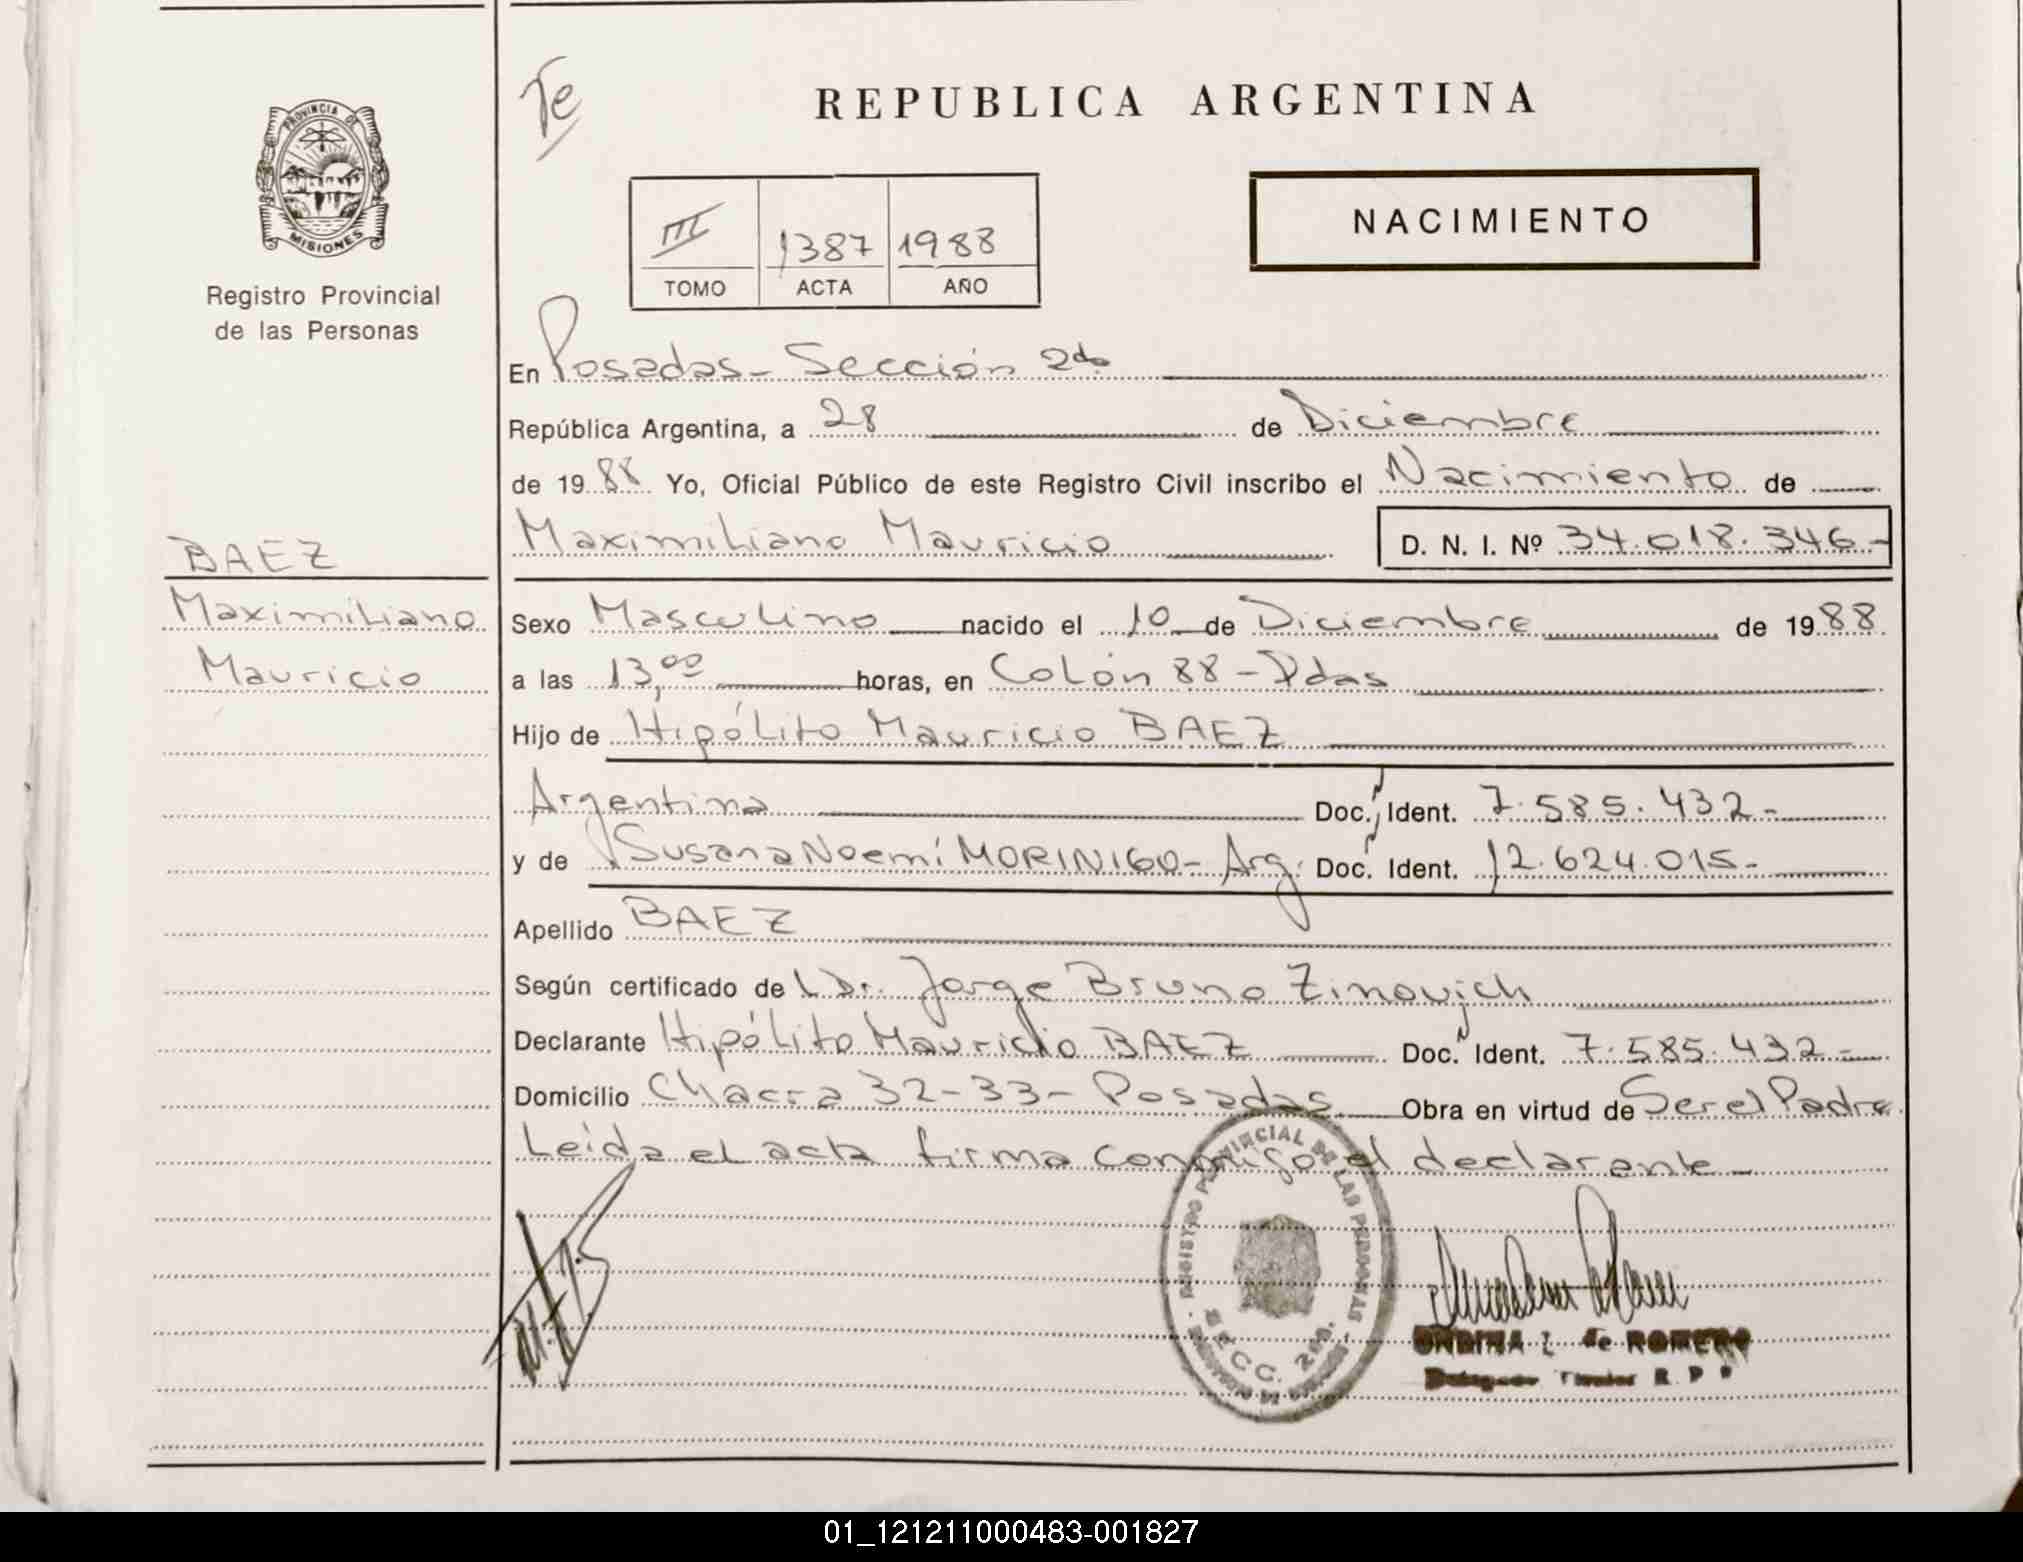 Te
REPUBLICA ARGENTINA
PROVINCIA DE
MISIONES
Registro Provincial
de las Personas
III 1387 1988
TOMO ACTA AÑO
NACIMIENTO
En Posadas - Sección 2da
República Argentina, a 28 de Diciembre
de 1988 Yo, Oficial Público de este Registro Civil inscribo el Nacimiento de
Maximiliano Mauricio D. N. I. Nº 34.018.346-
BAEZ
Maximiliano
Mauricio
Sexo Masculino nacido el 10 de Diciembre de 1988
a las 13,00 horas, en Colón 88 - Pdas
Hijo de Hipólito Mauricio BAEZ
Argentina Doc. Ident. 7.585.432-
y de Susana Noemí MORINIGO - Arg. Doc. Ident. 12.624.015-
Apellido BAEZ
Según certificado del Dr. Jorge Bruno Zinovich
Declarante Hipólito Mauricio BAEZ Doc. Ident. 7.585.432-
Domicilio Chacra 32-33- Posadas Obra en virtud de Ser el Padre
Leída el acta firma conmigo el declarante-
REGISTRO PROVINCIAL DE LAS PERSONAS
SECC. 2da.
ONDINA L. de ROMERO
R. P. P.
01_121211000483-001827